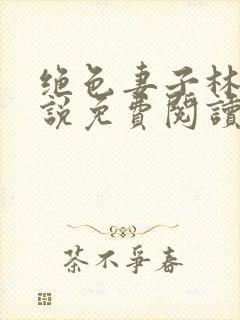 绝色妻子林
説免費閱讀
茶不爭春